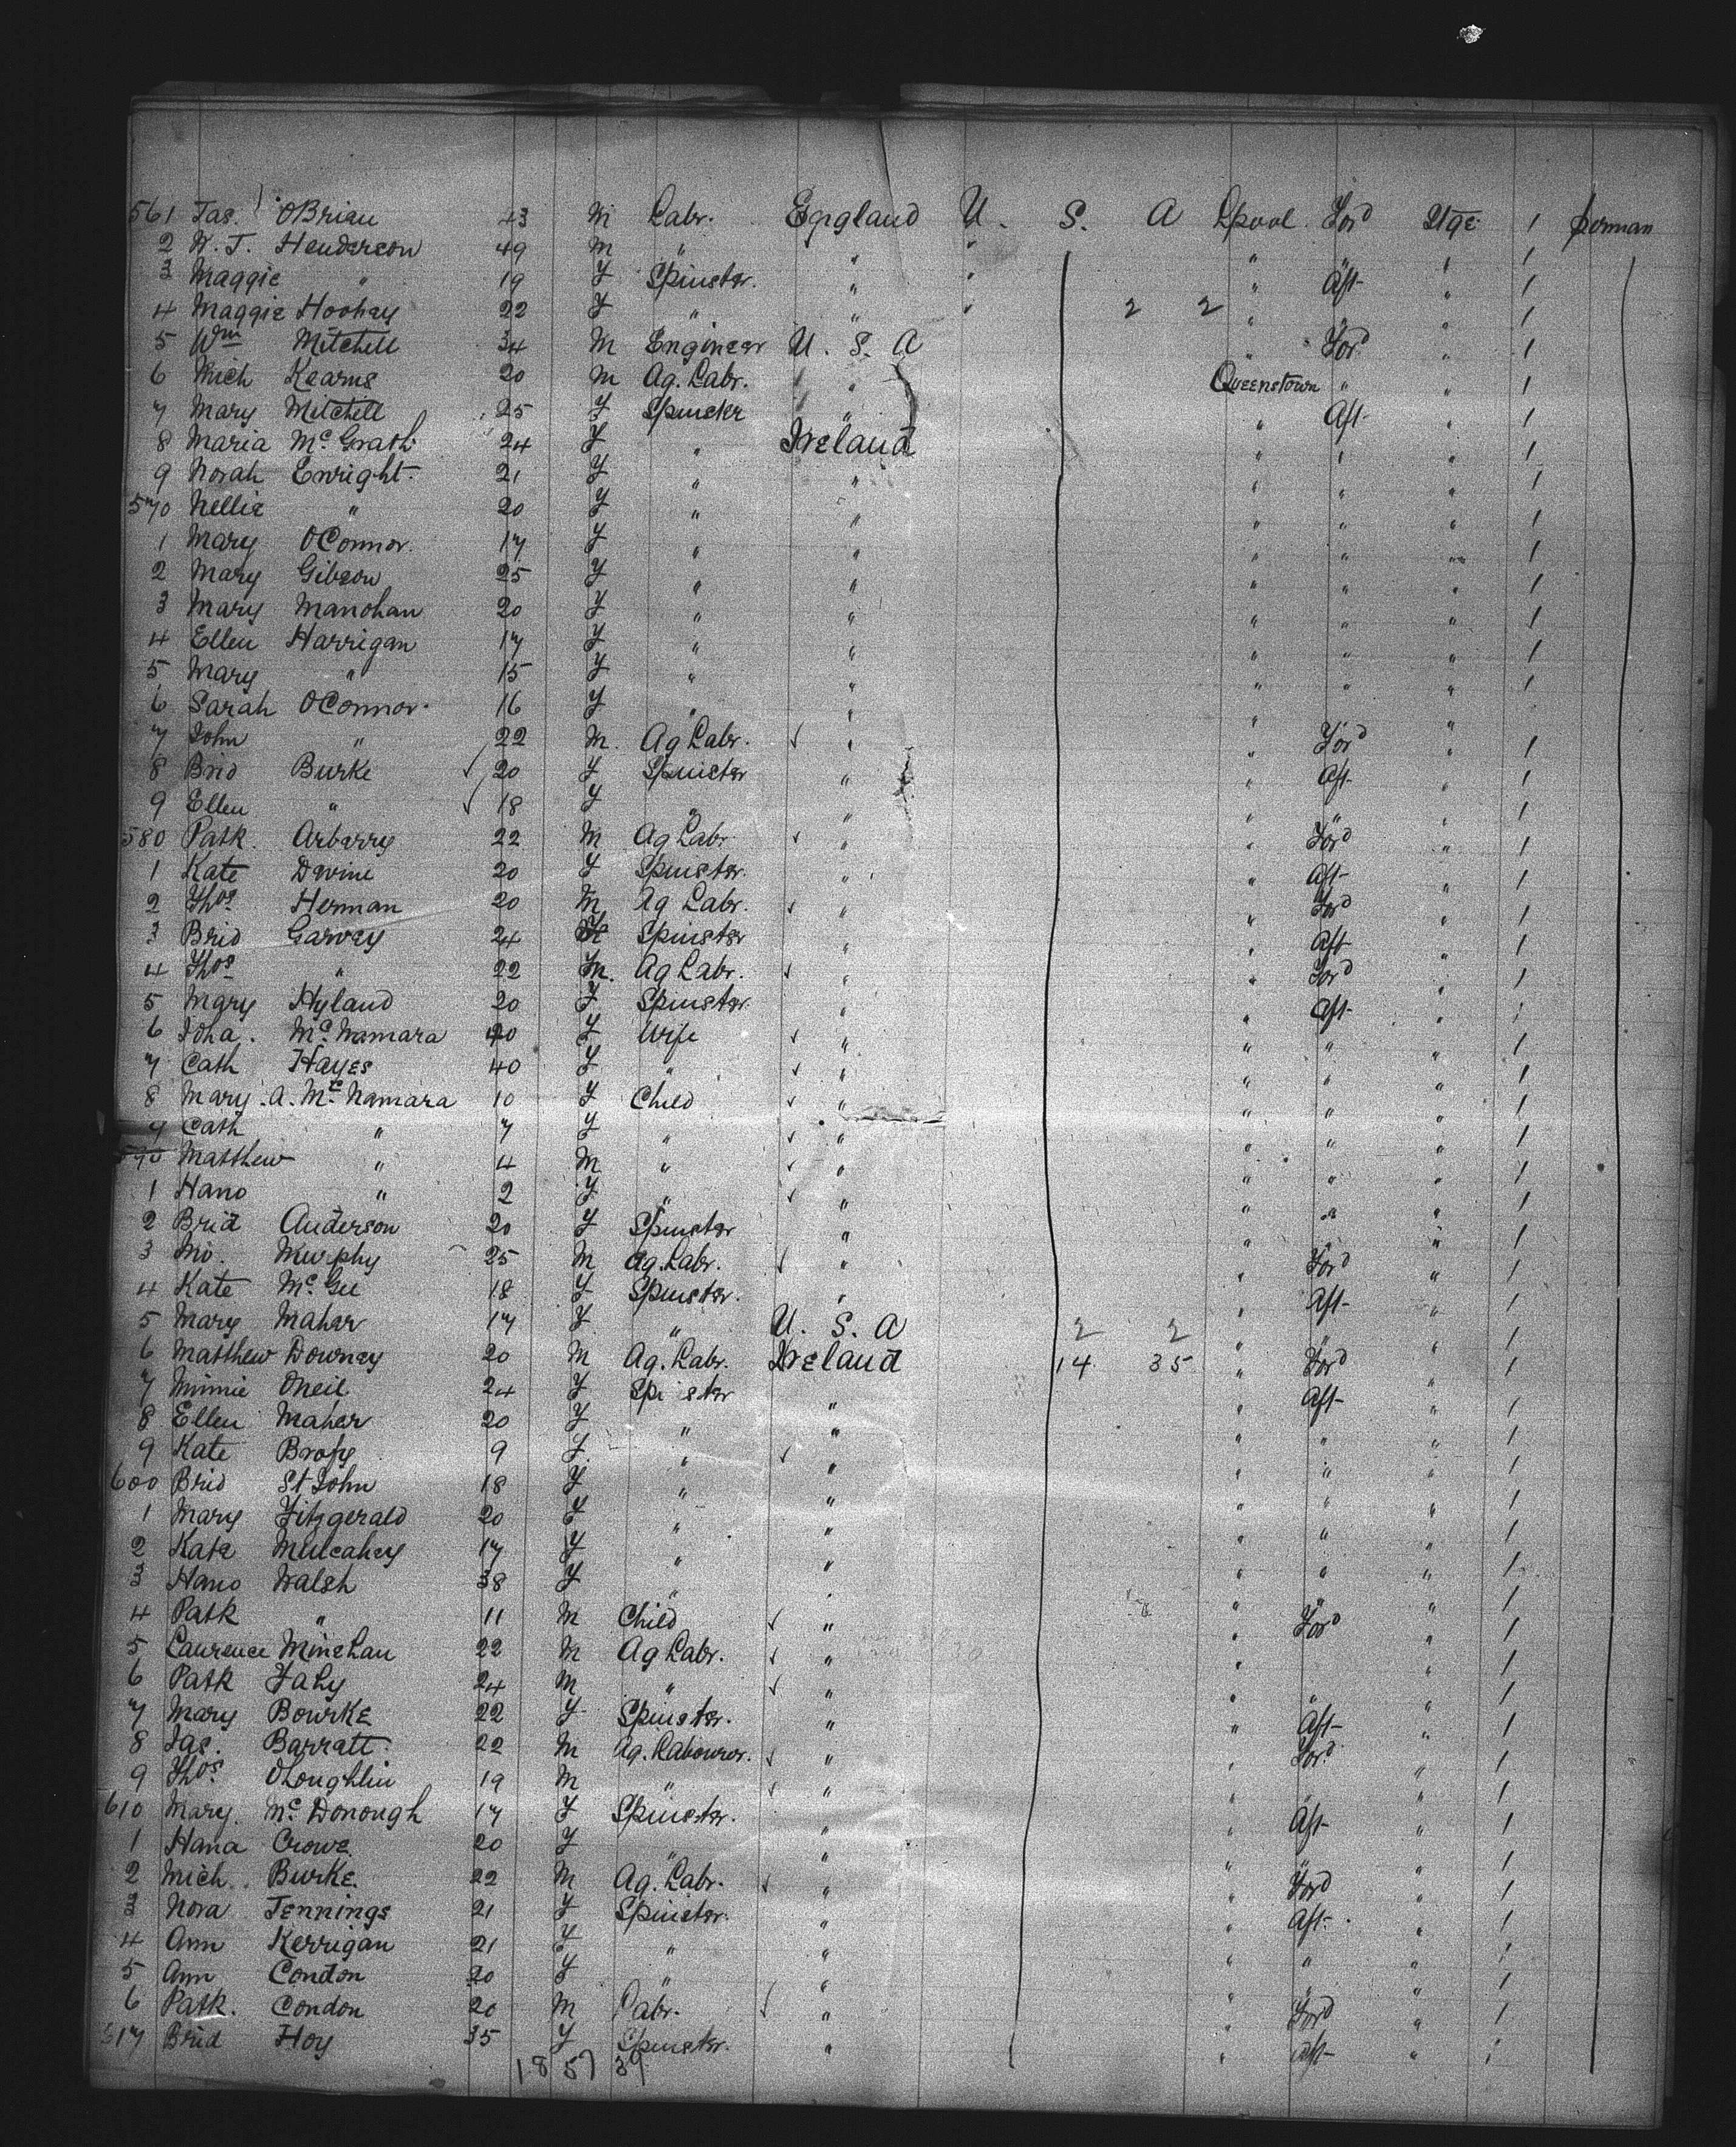 561 Jas. OBrien 43 M Labr. England U. S. A Lpool Ford Stge 1 perman
2 W. J. Henderson 49 M " " " " " " 1
3 Maggie " 19 F Spinster. " " " Aft " 1
4 Maggie Hoohey 22 F " " " 2 2 " " " 1
5 Wm Mitchell 34 M Engineer U. S. A " Ford " 1
6 Mich Kearns 20 M Ag. Labr. " Queenstown " " 1
7 Mary Mitchell 25 F Spinster " " Aft " 1
8 Maria McGrath 24 F " Ireland " " " 1
9 Norah Enright 21 F " " " " " 1
570 Nellie " 20 F " " " " " 1
1 Mary OConnor. 17 F " " " " " 1
2 Mary Gibson 25 F " " " " " 1
3 Mary Manohan 20 F " " " " " 1
4 Ellen Harrigan 17 F " " " " " 1
5 Mary " 15 F " " " " " 1
6 Sarah OConnor 16 F " " " "
7 John " 22 M. Ag Labr. " " Ford " 1
8 Brid Burke 20 F Spinster " " Aft " 1
9 Ellen " 18 F " " " " " 1
580 Patk. Arbarry 22 M Ag Labr. " " Ford " 1
1 Kate Devine 20 F Spinster. " " Aft " 1
2 Thos. Herman 20 M Ag Labr. " " Ford " 1
3 Brid Garvey 24 F Spinster " " Aft " 1
4 Thos " 22 M. Ag Labr. " " Ford " 1
5 Mary Hyland 20 F Spinster. " " Aft " 1
6 Joha. McNamara 40 F Wife " " " " 1
7 Cath Hayes 40 F " " " " " 1
8 Mary. A. McNamara 10 F Child " " " " 1
9 Cath " 7 F " " " " " 1
590 Matthew " 4 M " " " " " 1
1 Hano " 2 F " " " " " 1
2 Brid Anderson 20 F Spinster " " " " 1
3 Mo. Murphy 25 M Ag. Labr. " " Ford " 1
4 Kate McGee 18 F Spinster. " " Aft " 1
5 Mary Maher 17 F " U. S. A 2 2 " " " 1
6 Matthew Downey 20 M Ag. Labr. Ireland 14 35 " Ford " 1
7 Minnie Oneil 24 F Spinster " " Aft " 1
8 Ellen Maher 20 F " " " " " 1
9 Kate Brofy 9 F. " " " " " 1
600 Brid St John 18 F " " " " " 1
1 Mary Fitzgerald 20 F " " " " " 1
2 Kate Mulcahey 17 F " " " " " 1
3 Hano Walsh 38 F " " " " " 1
4 Patk " 11 M Child " " Ford " 1
5 Laurence Minehan 22 M Ag Labr. " " " 1
6 Patk Fahy 24 M " " " " " 1
7 Mary Bourke 22 F Spinster. " " Aft " 1
8 Jas. Barratt 22 M Ag. Labourer. " " Ford " 1
9 Thos. OLoughlin 19 M " " " " " 1
610 Mary McDonough 17 F Spinster. " " Aft " 1
1 Hana Crowe 20 F " " " " " 1
2 Mich. Burke. 22 M Ag. Labr. " " Ford " 1
3 Nora Jennings 21 F Spinster. " " Aft " 1
4 Ann Kerrigan 21 F " " " " " 1
5 Ann Condon 20 F " " " " " 1
6 Patk. Condon 20 M Labr. " " Ford " 1
617 Brid Hoy 35 F Spinster. " " Aft " 1
18 57 39